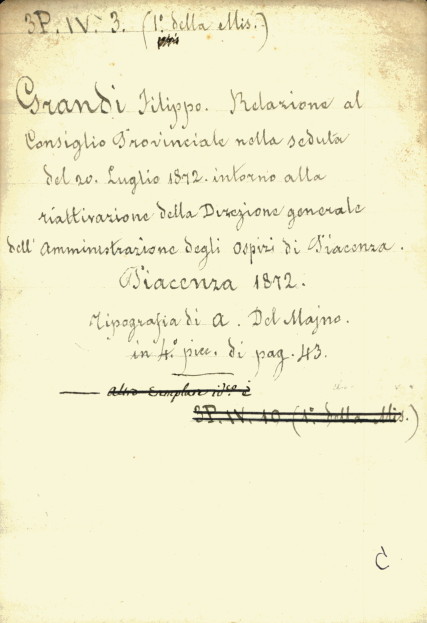 3P. IV. 3. (1º. della Mis.)
Grandi Filippo. Relazione al
Consiglio Provinciale nella seduta
del 20. Luglio 1872. intorno alla
riattivazione della Direzione generale
dell'Amministrazione degli Ospizi di Piacenza.
Piacenza 1872.
Tipografia di A. Del Majno.
in 4.º picc. di pag. 43.
Altro Esemplare
3P. IV. 10 (1º della Mis.)
C